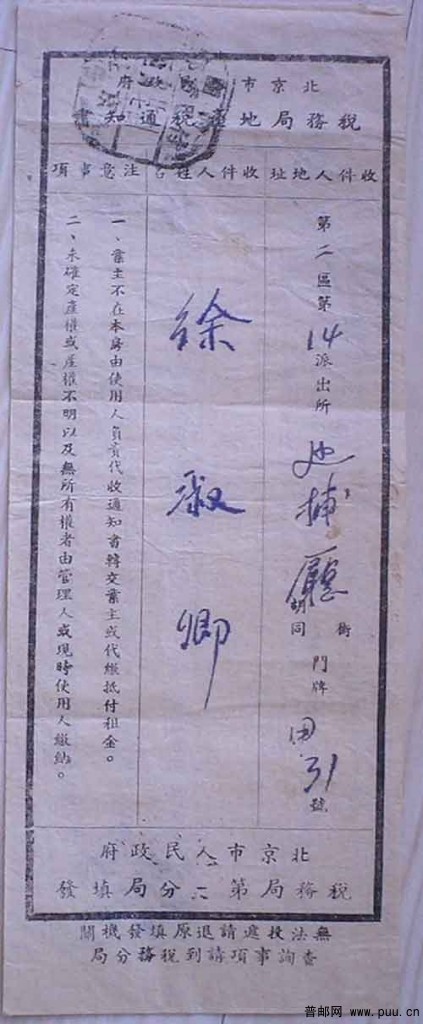 北京市政府
稅務局地產稅通知書
收件人地址
收件人姓名
注意事項
第二區第14派出所
巡捕廳
街
胡同
門牌31號
徐淑卿
一、業主不在本身由使用人負責代收通知書轉交業主或代繳抵付租金。
二、未確定產權或產權不明以及無所有權者由管理人或現時使用人繳納。
北京市人民政府
稅務局第分局填發
無法投遞請退原填發機關
查詢事項請到稅務分局
普邮网 www.puu.cn